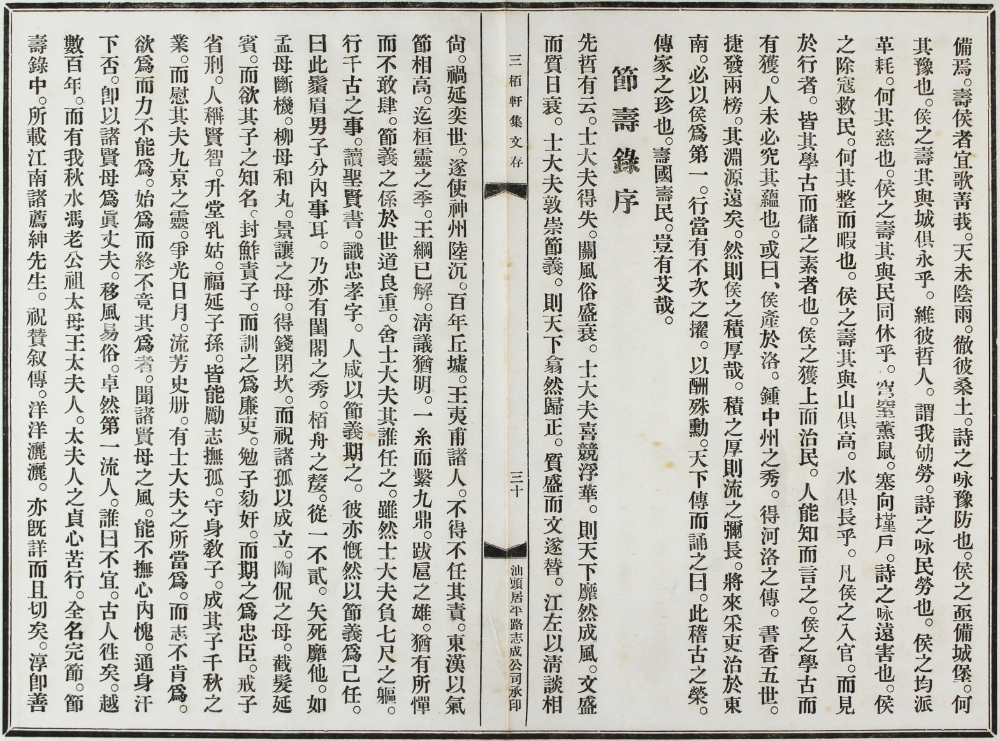 備焉。壽侯者宜歌菁莪。天未陰雨。徹彼桑土。詩之咏豫防也。侯之亟備城堡。何
其豫也。侯之壽其與城俱永乎。維彼哲人。謂我劬勞。詩之咏民勞也。侯之均派
革耗。何其慈也。侯之壽其與民同休乎。穹窒薰鼠。塞向墐戶。詩之咏遠害也。侯
之除寇救民。何其整而暇也。侯之壽其與山俱高。水俱長乎。凡侯之入官。而見
於行者。皆其學古而儲之素者也。侯之獲上而治民。人能知而言之。侯之學古而
有獲。人未必究其蘊也。或曰、侯產於洛。鍾中州之秀。得河洛之傳。書香五世。
捷發兩榜。其淵源遠矣。然則侯之積厚哉。積之厚則流之彌長。將來宋吏治於東
南。必以侯爲第一。行當有不次之擢。以酬殊勳。天下傳而誦之曰。此稽古之榮。
傳家之珍也。壽國壽民。豈有艾哉。
節壽錄序
先哲有云。士大夫得失。關風俗盛衰。士大夫喜競浮華。則天下靡然成風。文盛
而質日衰。士大夫敦崇節義。則天下翕然歸正。質盛而文遂替。江左以清談相
三栢軒集文存
三十
汕頭居平路志成公司承印
尙。禍延奕世。遂使神州陸沉。百年丘墟。王夷甫諸人。不得不任其責。東漢以氣
節相高。迄桓靈之季。王綱已解。清議猶明。一糸而繫九鼎。跋扈之雄。猶有所憚
而不敢肆。節義之係於世道良重。舍士大夫其誰任之。雖然士大夫負七尺之軀。
行千古之事。讀聖賢書。識忠孝字。人咸以節義期之。彼亦慨然以節義爲己任。
曰此鬚眉男子分內事耳。乃亦有閨閣之秀。栢舟之嫠。從一不貳。矢死靡他。如
孟母斷機。柳母和丸。景讓之母。得錢閉坎。而祝諸孤以成立。陶侃之母。截髮延
賓。而欲其子之知名、封鮮責子。而訓之爲廉吏。勉子劾奸。而期之爲忠臣。戒子
省刑。人稱賢智。升堂乳姑。福延子孫。皆能勵志撫孤。守身敎子。成其子千秋之
業。而慰其夫九京之靈。爭光日月。流芳史册。有士大夫之所當爲。而志不肯爲。
欲爲而力不能爲。始爲而終不竟其爲者。聞諸賢母之風。能不撫心內愧。通身汗
下否。卽以諸賢母爲眞丈夫。移風易俗。卓然第一流人。誰曰不宜。古人徃矣。越
數百年。而有我秋水馮老公祖太母王太夫人。太夫人之貞心苦行。全名完節。節
壽錄中。所載江南諸薦紳先生。祝贊叙傳。洋洋灑灑。亦旣詳而且切矣。淳卽善